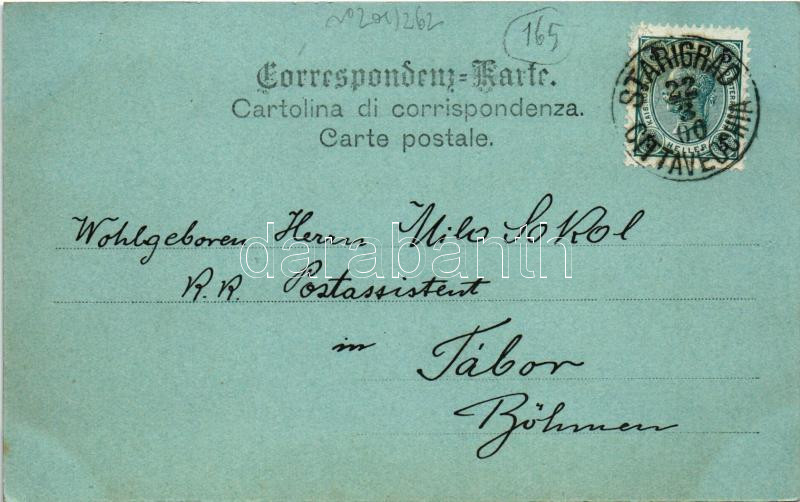 165
Correspondenz-Karte.
Cartolina di corrispondenza.
Carte postale.
STARIGRAD
22
3
00
CITTAVECCHIA
HELLER
Wohlgeboren Herrn Milo Sokol
K. K. Postassistent
in Tábor
Böhmen
darabanth